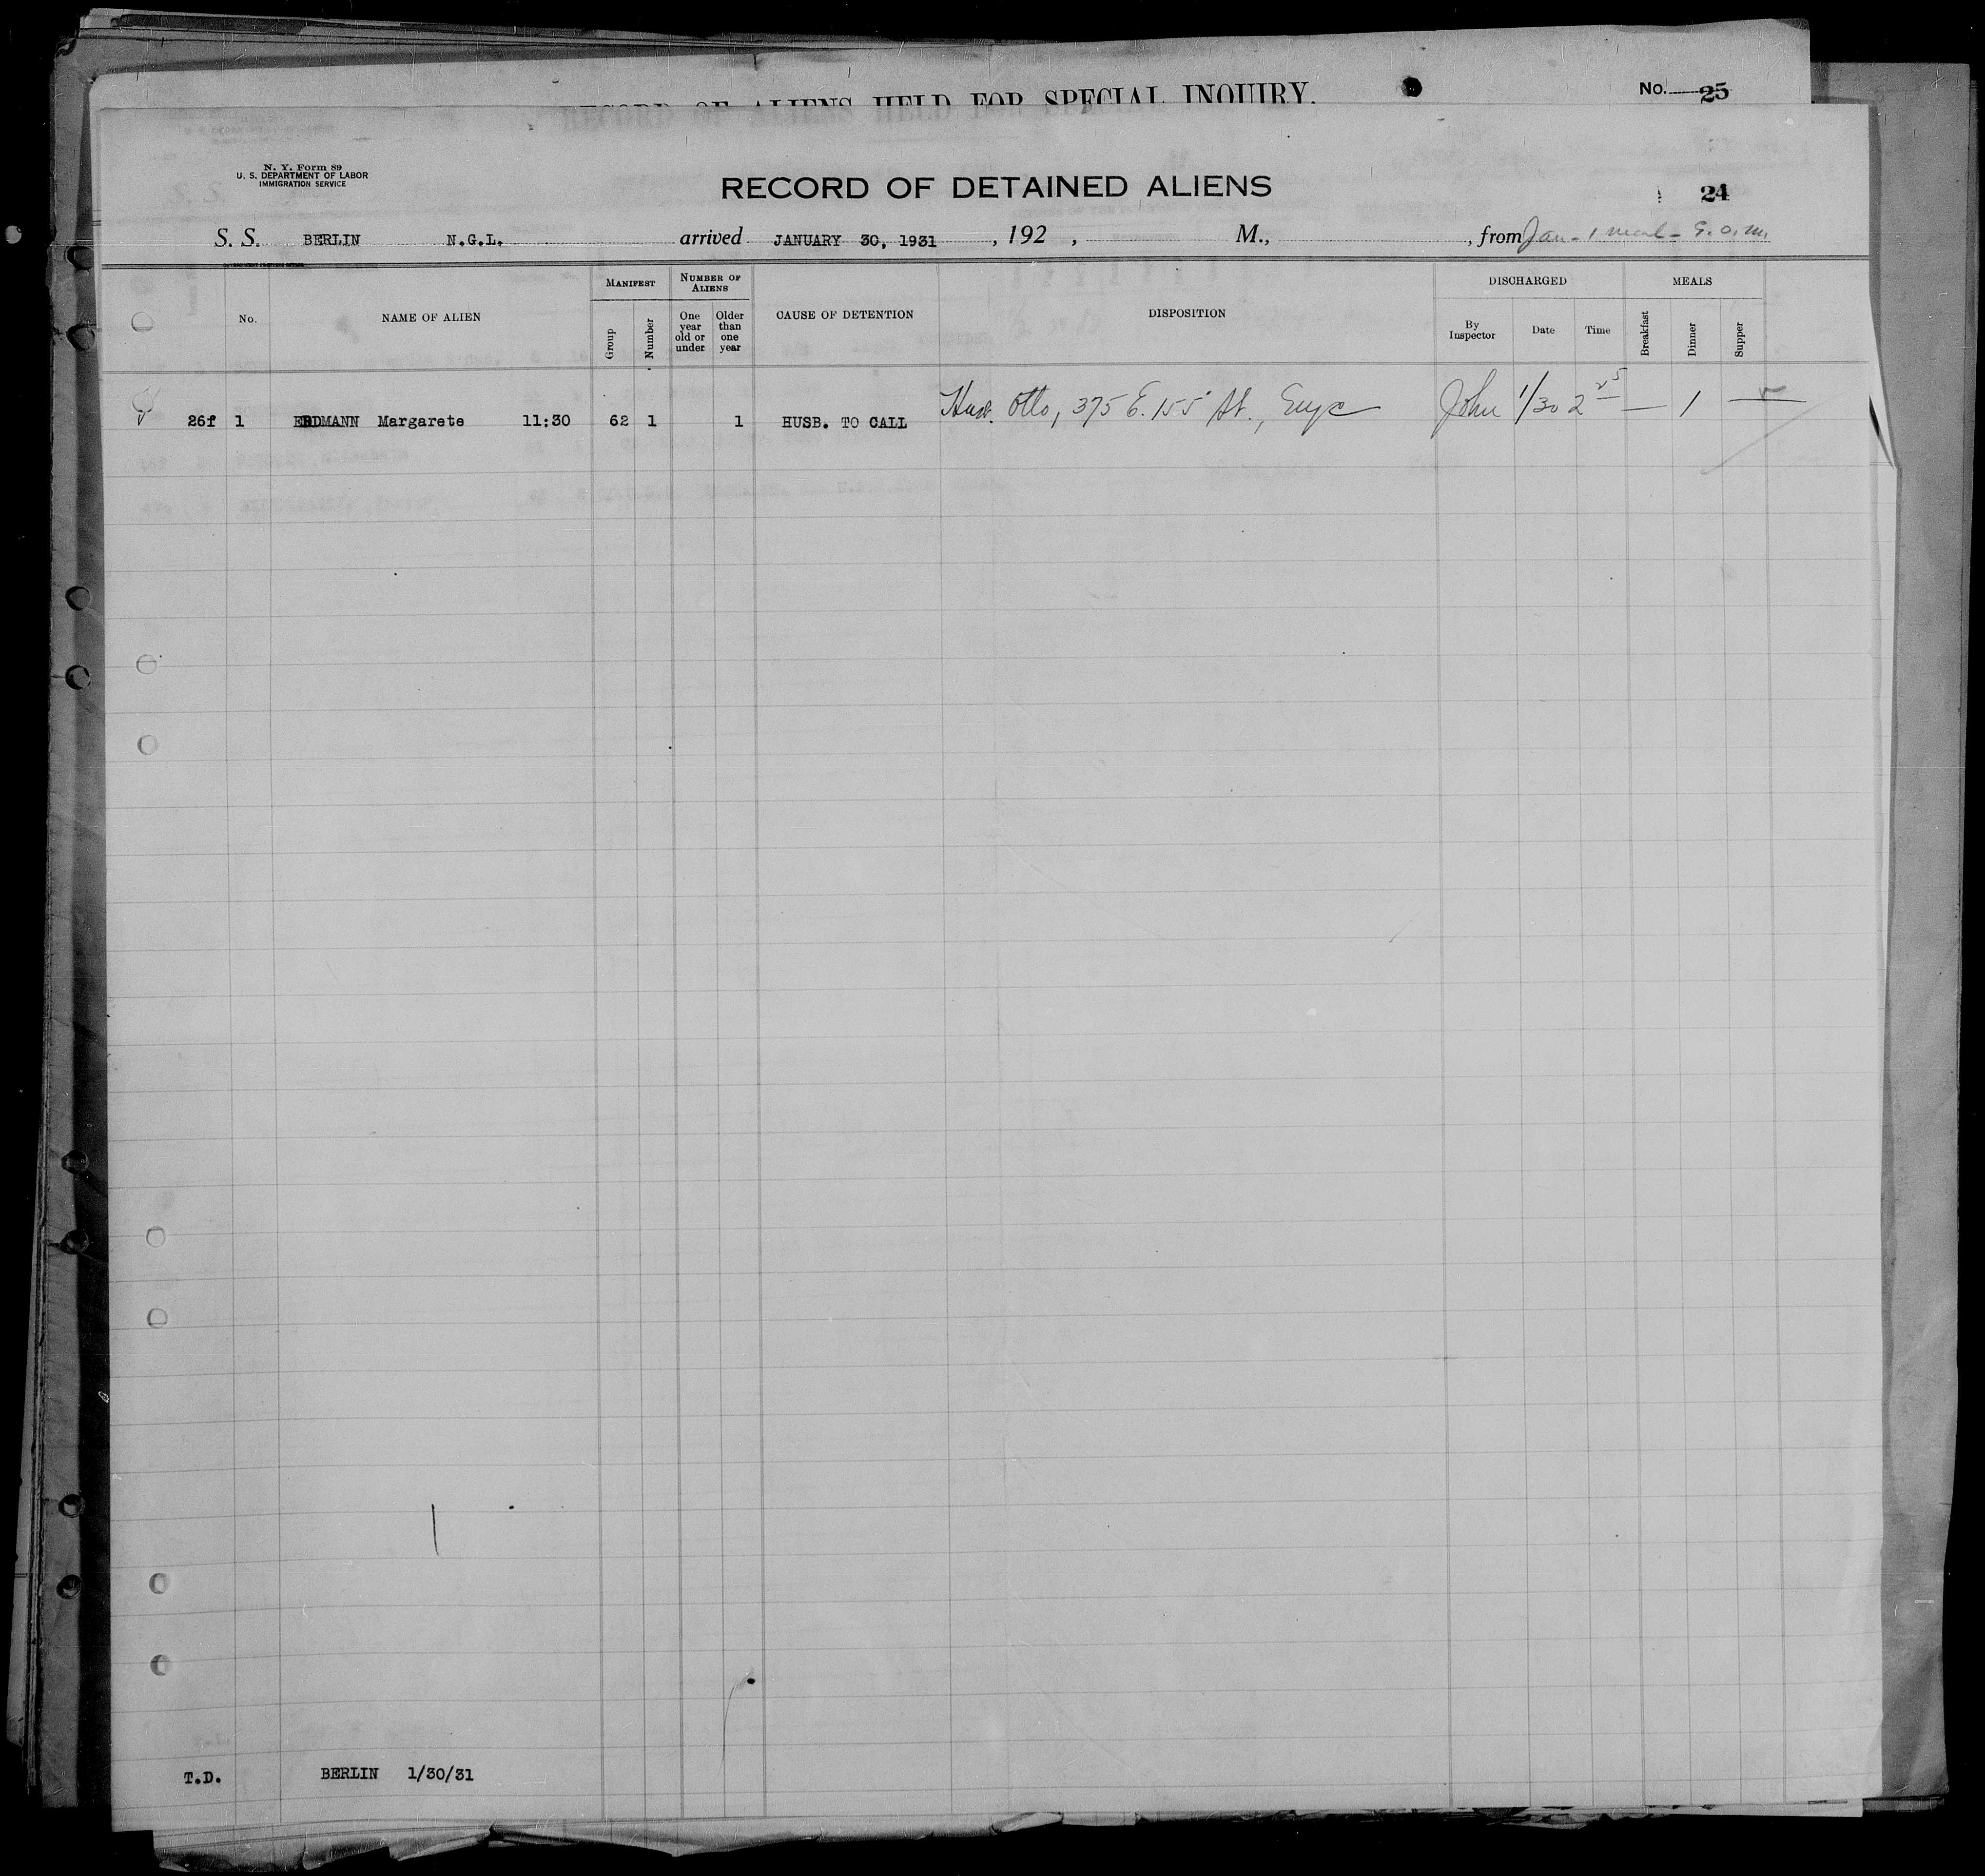 RECORD OF ALIENS HELD FOR SPECIAL INQUIRY.
No. 25
N. Y. Form 89
U. S. DEPARTMENT OF LABOR
IMMIGRATION SERVICE
RECORD OF DETAINED ALIENS
24
S. S. BERLIN N.G.L. arrived JANUARY 30, 1931 , 192 , M., , from Jan - 1 meal - 9. a. m.
No.
NAME OF ALIEN
MANIFEST
Group
Number
NUMBER OF ALIENS
One year old or under
Older than one year
CAUSE OF DETENTION
DISPOSITION
DISCHARGED
By Inspector
Date
Time
MEALS
Breakfast
Dinner
Supper
26f 1 ERDMANN Margarete 11:30 62 1 1 HUSB. TO CALL Husb. Otto, 375 E. 155 St., John 1/30 2 25 — 1 —
T.D. BERLIN 1/30/31